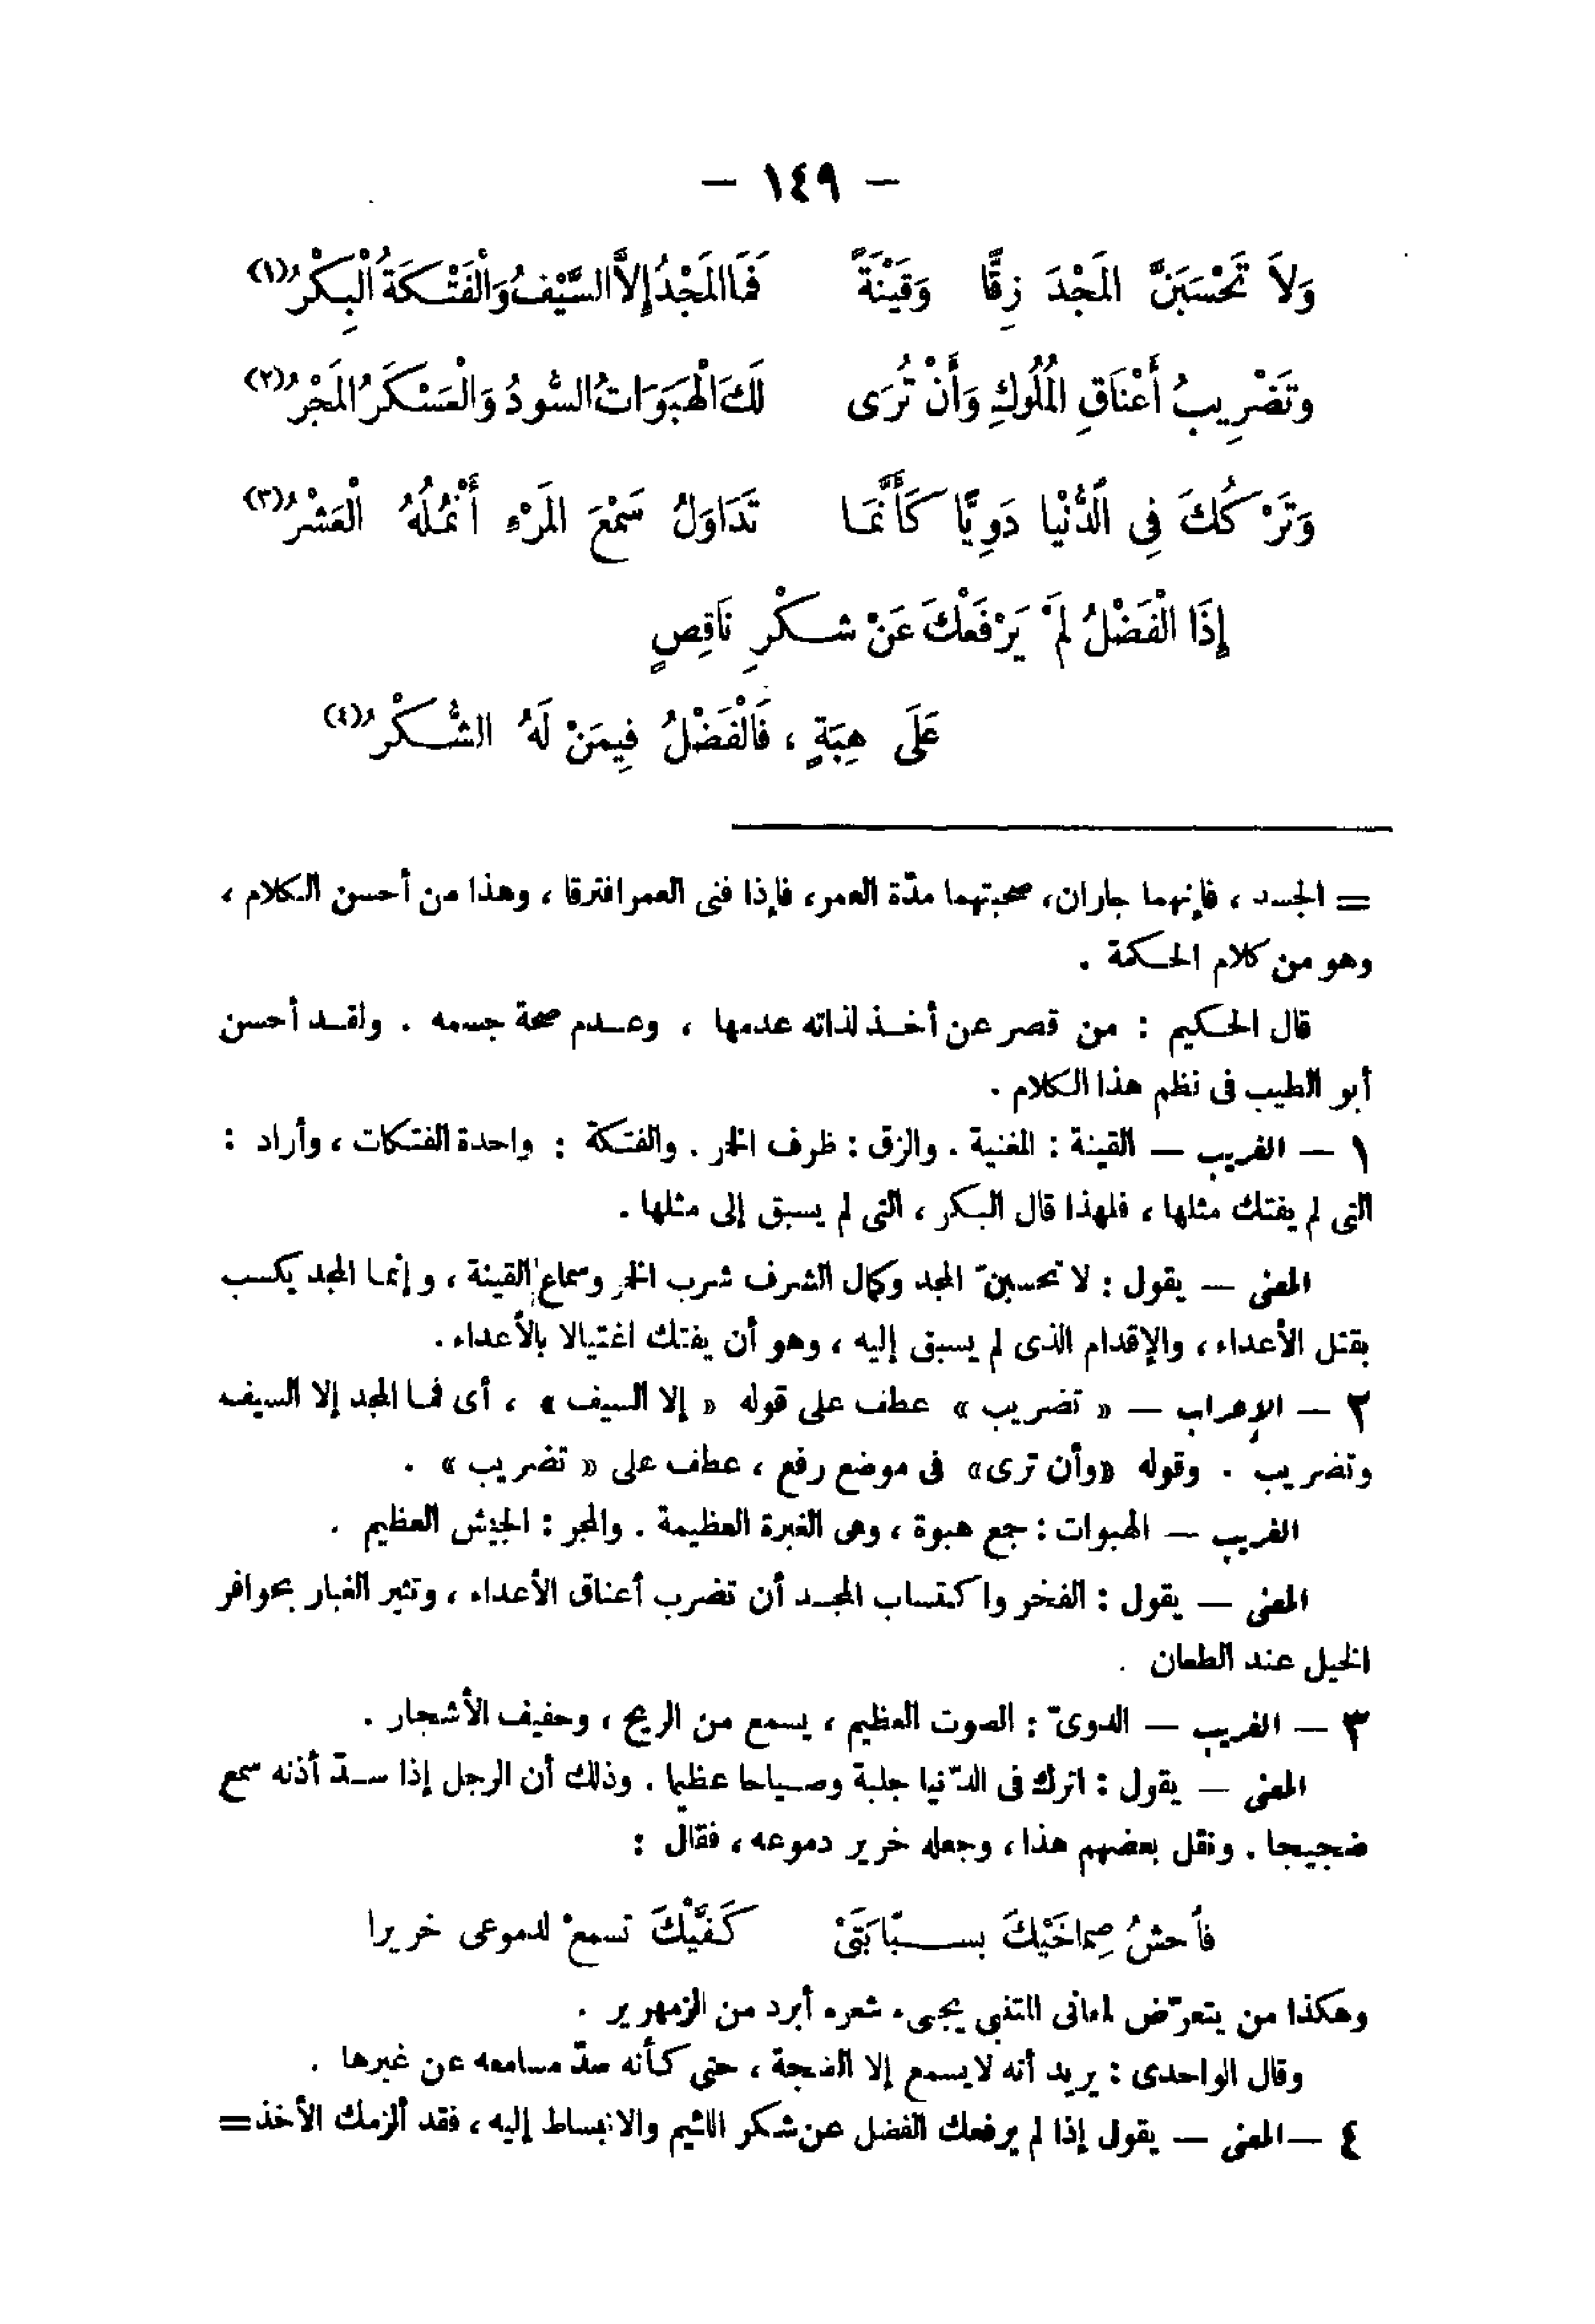 — ١٤٩ —
وَلاَ تَحْسَبَنَّ المَجْدَ زِقًّا وَقَيْنَةً فَمَا المَجْدُ إِلاَّ السَّيْفُ وَالْفَتْكَةُ الْبِكْرُ (١)
وتَضْرِيبُ أَعْنَاقِ المُلُوكِ وَأَنْ تُرَى لَكَ الْهَبَوَاتُ السُّودُ وَالْعَسْكَرُ المَجْرُ (٢)
وَتَرْكُكَ فِى الدُّنْيا دَوِيًّا كَأَنَّمَا تَدَاوَلُ سَمْعَ المَرْءِ أَنْمُلُهُ الْعَشْرُ (٣)
إِذَا الْفَضْلُ لَمْ يَرْفَعْكَ عَنْ شكْرِ نَاقِصٍ
عَلَى هِبَةٍ ، فَالْفَضْلُ فِيمَنْ لَهُ الشُّكْرُ (٤)
= الجسد ، فإنهما جاران، صحبتهما مدّة العمر، فإذا فنى العمر افترقا ، وهذا من أحسن الكلام ،
وهو من كلام الحكمة .
قال الحكيم : من قصر عن أخذ لذاته عدمها ، وعدم صحة جسمه . ولقد أحسن
أبو الطيب فى نظم هذا الكلام .
١ — الغريب — القينة : المغنية . والزق : ظرف الخمر . والفتكة : واحدة الفتكات ، وأراد :
التى لم يفتك مثلها ، فلهذا قال البكر ، التى لم يسبق إلى مثلها .
المعنى — يقول : لا تحسبنّ المجد وكمال الشرف شرب الخمر وسماع القينة ، وإنما المجد يكسب
بقتل الأعداء ، والإقدام الذى لم يسبق إليه ، وهو أن يفتك اغتيالا بالأعداء .
٢ — الإعراب — « تضريب » عطف على قوله « إلا السيف » ، أى فما المجد إلا السيف
وتضريب . وقوله «وأن ترى» فى موضع رفع ، عطف على « تضريب » .
الغريب — الهبوات : جمع هبوة ، وهى الغبرة العظيمة . والمجر : الجيش العظيم .
المعنى — يقول : الفخر واكتساب المجد أن تضرب أعناق الأعداء ، وتثير الغبار بحوافر
الخيل عند الطعان .
٣ — الغريب — الدوىّ : الصوت العظيم ، يسمع من الريح ، وحفيف الأشجار .
المعنى — يقول : اترك فى الدّنيا جلبة وصياحا عظيما . وذلك أن الرجل إذا سدّ أذنه سمع
ضجيجا . ونقل بعضهم هذا ، وجعله خرير دموعه ، فقال :
فأحشُ صِماخَيْكَ بسبّابَتَىْ كَفَّيْكَ تسمعْ لدموعى خريرا
وهكذا من يتعرّض لمعانى المتنبى يجىء شعره أبرد من الزمهرير .
وقال الواحدى : يريد أنه لا يسمع إلا الضجة ، حتى كأنه سدّ مسامعه عن غيرها .
٤ — المعنى — يقول إذا لم يرفعك الفضل عن شكر اللئيم والانبساط إليه ، فقد ألزمك الأخذ =